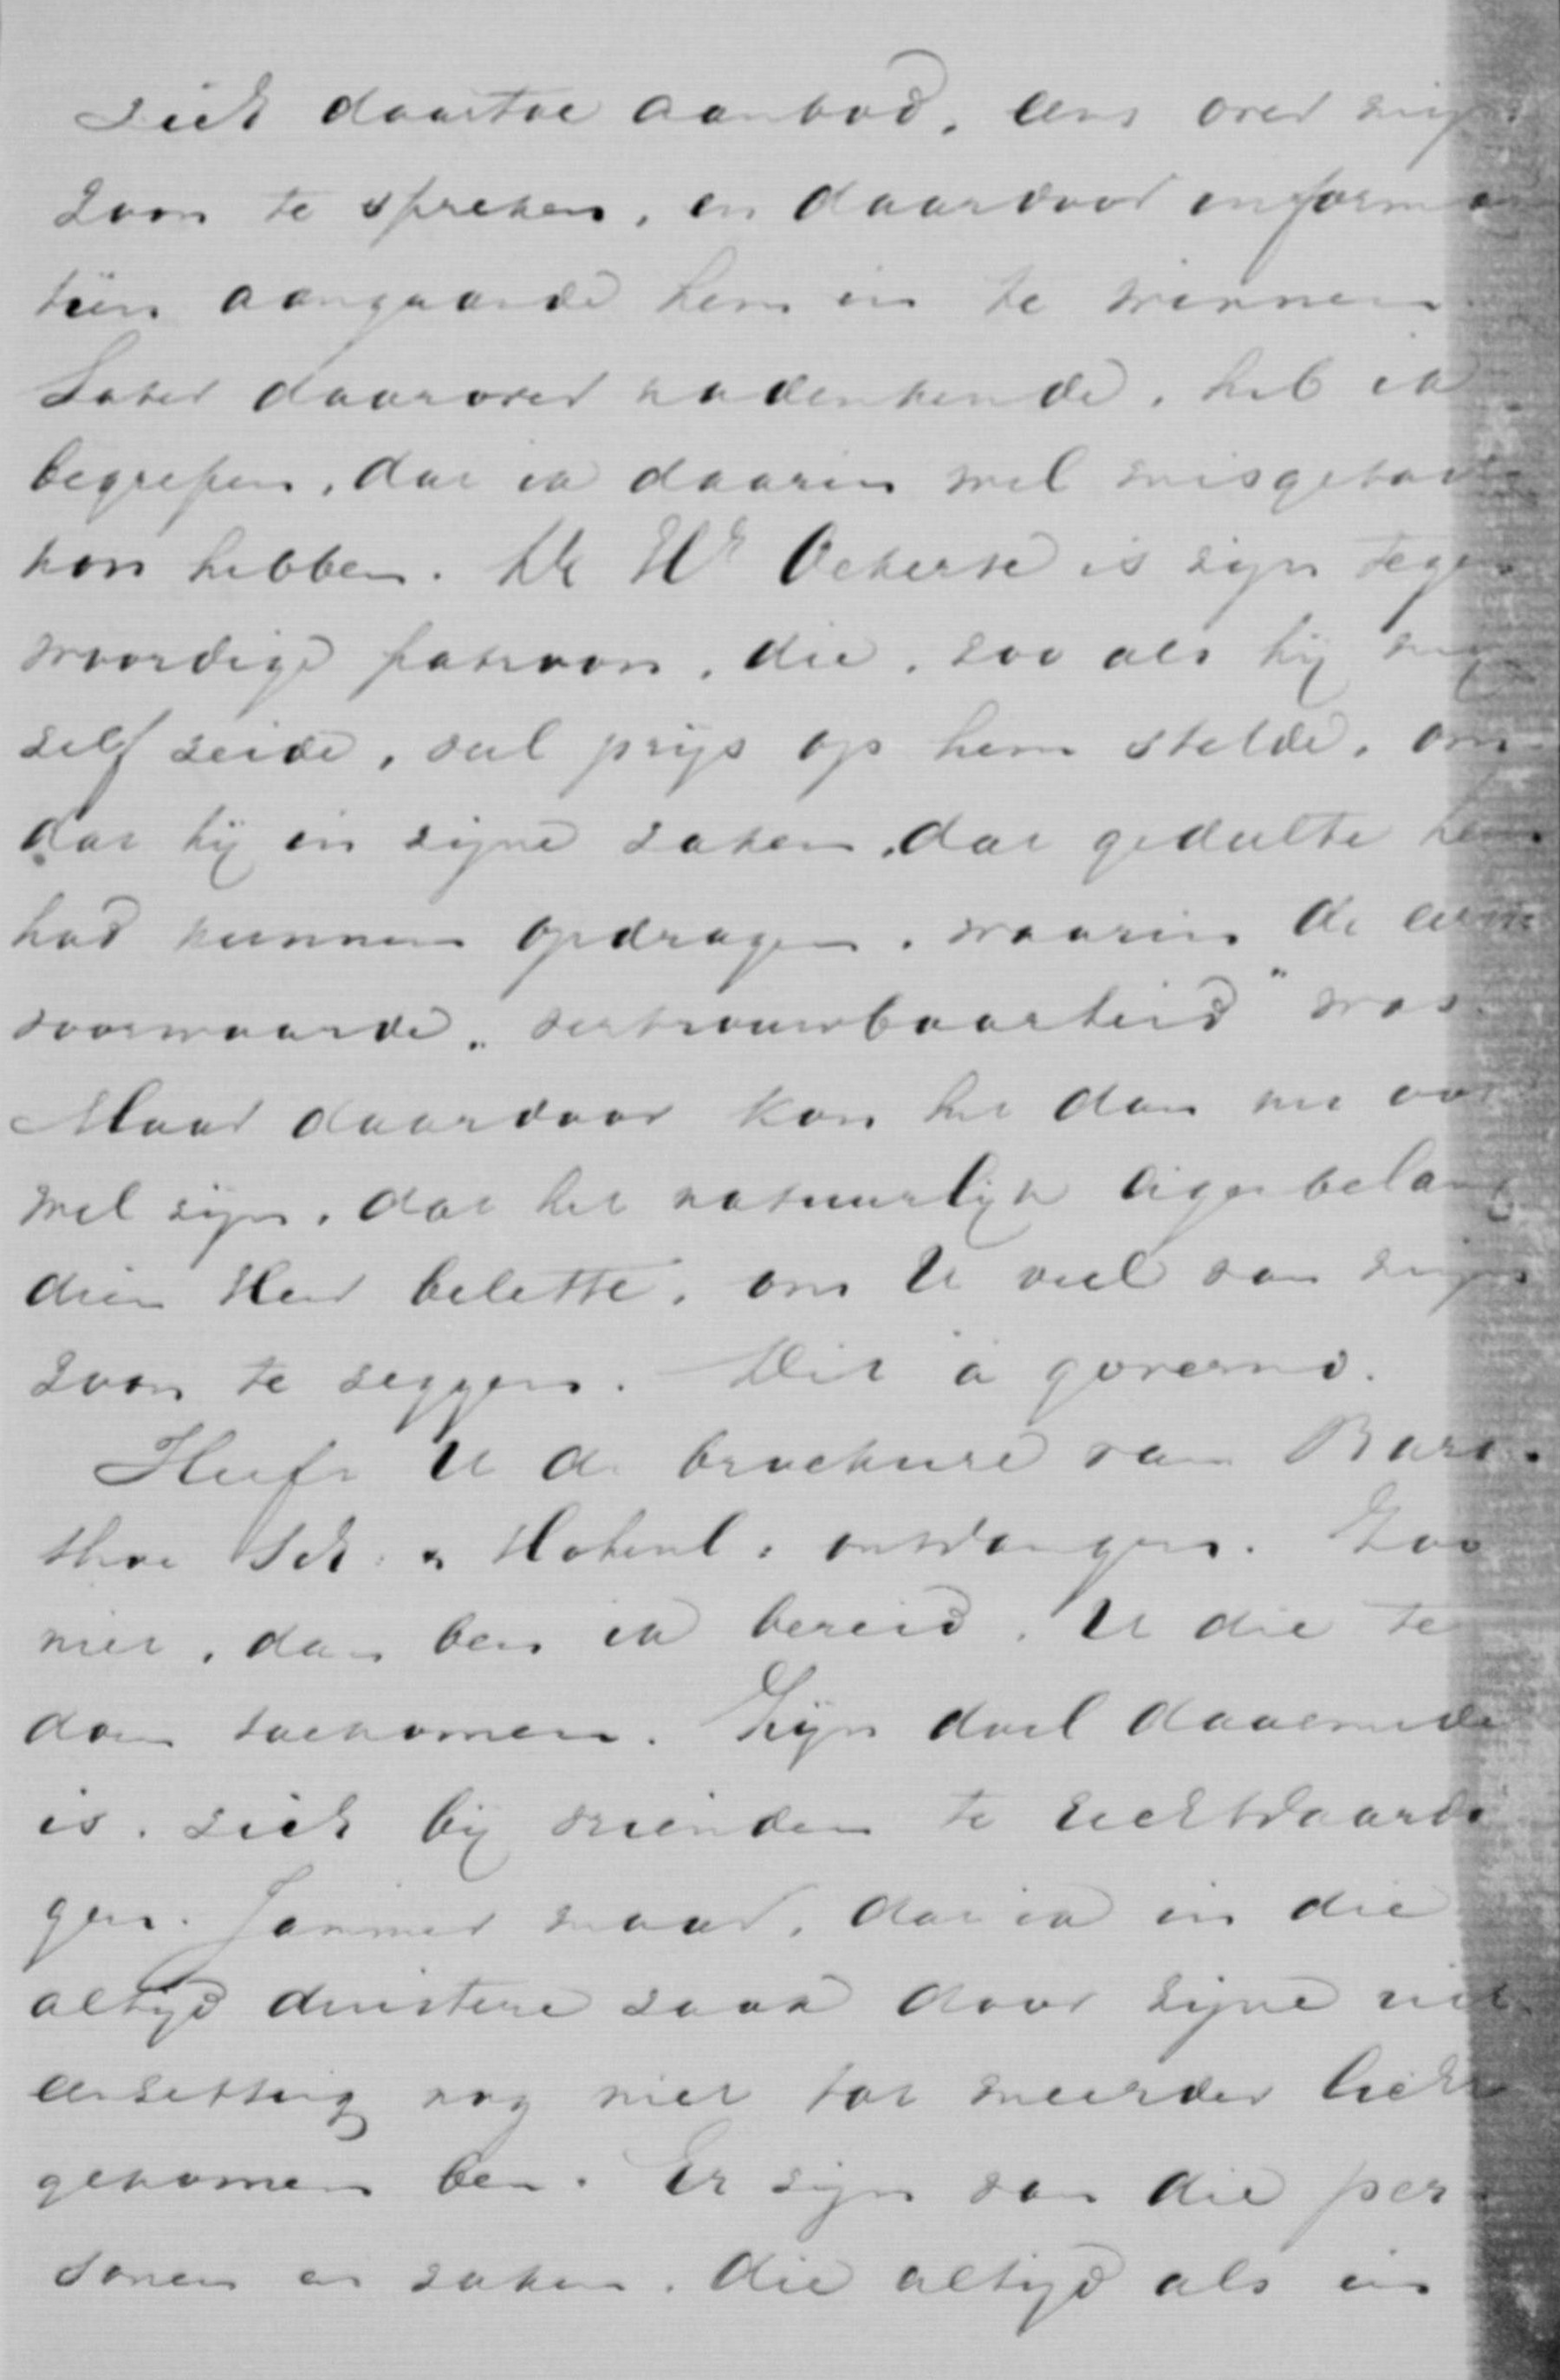 zich daartoe aanbod, eens over mijn
zoon te spreken, en daardoor informa
tiën aangaande hem in te winnen.
Later daarover nadenkende, heb ik
begrepen, dat ik daarin wel misgetast
kon hebben. De Hr Ockerse is zijn tegen
woordige patroon, die, zoo als hij mij
zelf zeide, veel prijs op hem stelde, om
dat hij in zijne zaken, dat gedeelte hem
had kunnen opdragen, waarin de eerste
voorwaarde „vertrouwbaarheid" was.
Maar daardoor kon het dan nu ook
wel zijn, dat het natuurlijk eigenbelang
dien Heer belette, om U veel van mijn
zoon te zeggen. Dit à governo.
Heeft U de brochure van Baro.
thoe Sch: & Hohenl: ontvangen. Zoo
niet, dan ben ik bereid, U die te
doen toekomen. Zijn doel daarmede
is, zich bij vrienden te rechtvaardi
gen. Jammer maar, dat ik in die
altijd duistere zaak door zijne uit
eenzetting nog niet tot meerder licht
gekomen ben. Er zijn van die per
sonen en zaken, die altijd als in